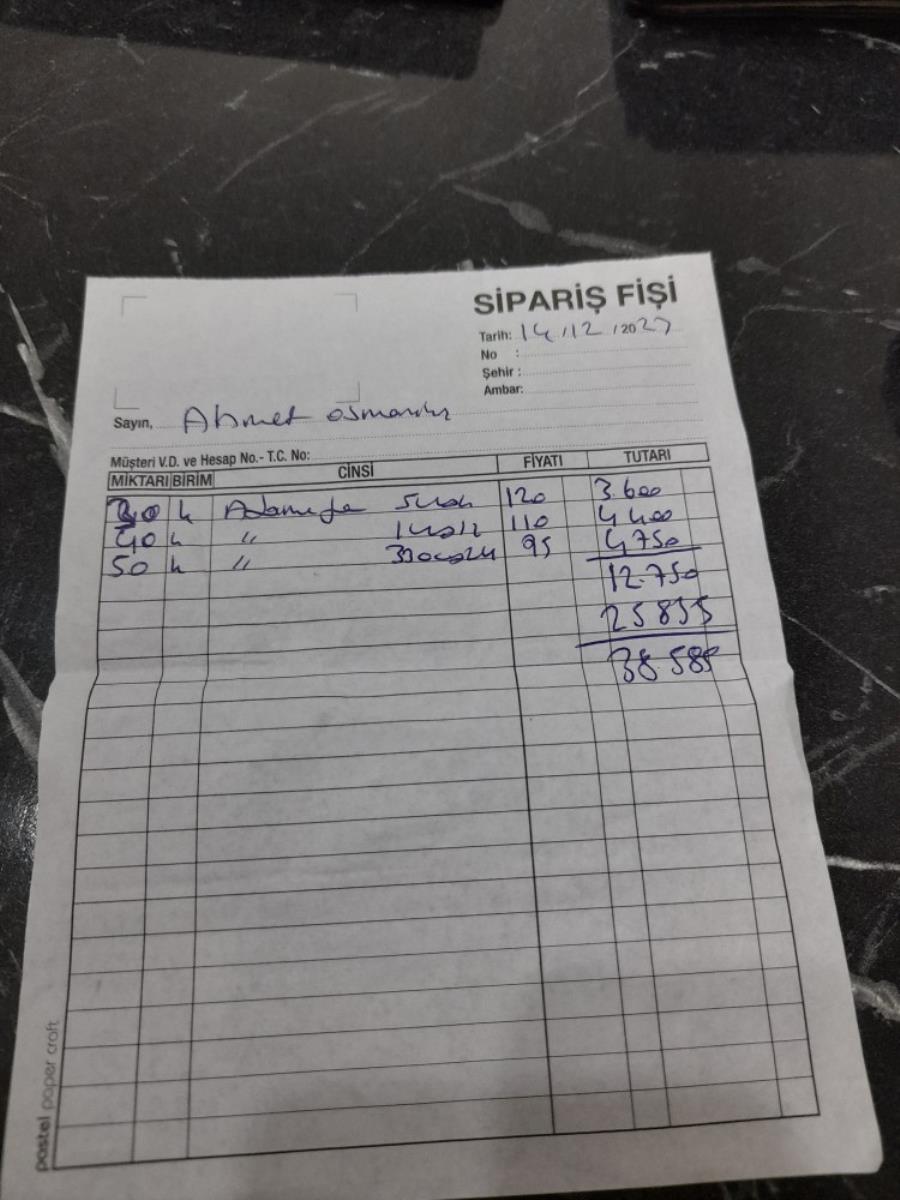 SİPARİŞ FİŞİ
Tarih: 14/12/2027
No :
Şehir :
Ambar:
Sayın, Ahmet
Müşteri V.D. ve Hesap No.- T.C. No:
MİKTARI BİRİM CİNSİ FİYATI TUTARI
30 k 120 3.600
40 k " 110 4400
50 k " 95 4750
12.750
25835
38.585
pastel paper craft